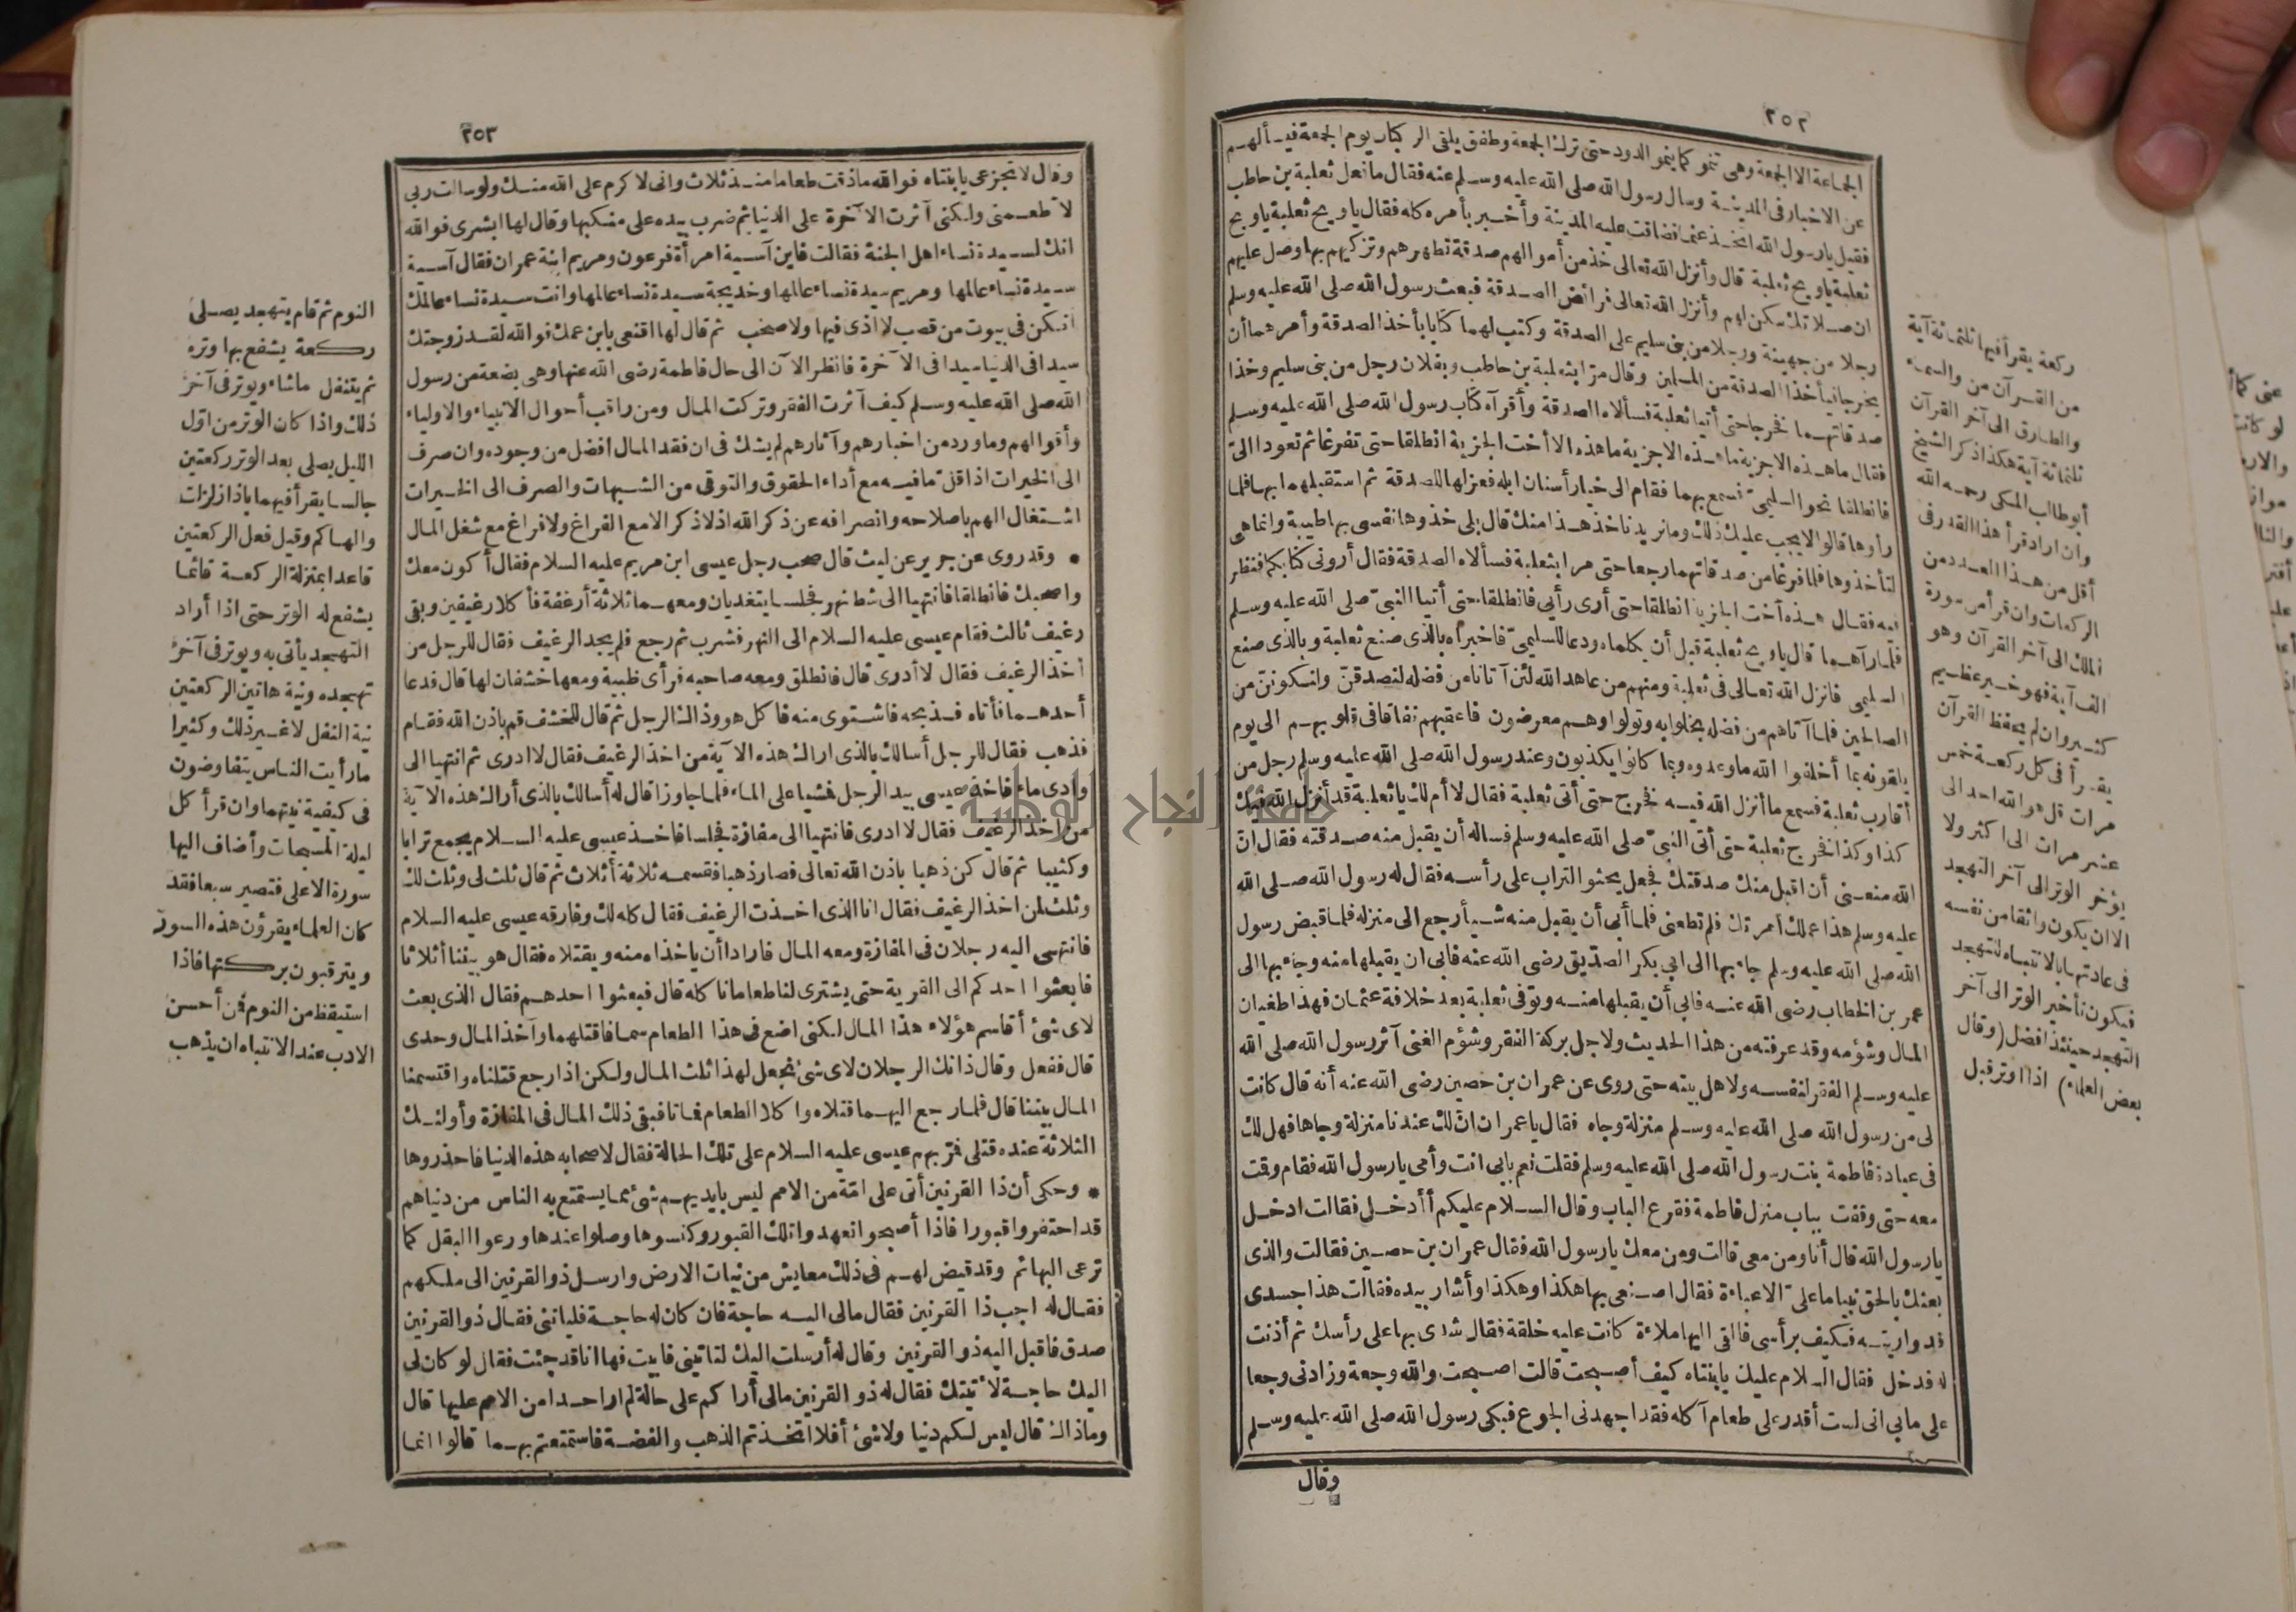 ٢٥٢
الجماعة الا الجمعة وهى تنمو كما ينمو الدود حتى ترك الجمعة وطفق يلقى الركبان يوم الجمعة فيسألهم
عن الاخبار فى المدينة وسال رسول الله صلى الله عليه وسلم عنه فقال ما فعل ثعلبة بن حاطب
فقيل يارسول الله اتخذ غنما فضاقت عليه المدينة وأخبر بأمره كله فقال ياويح ثعلبة ياويح
ثعلبة ياويح ثعلبة قال وأنزل الله تعالى خذ من أموالهم صدقة تطهرهم وتزكيهم بها وصل عليهم
ان صلاتك سكن لهم وأنزل الله تعالى فرائض الصدقة فبعث رسول الله صلى الله عليه وسلم
رجلا من جهينة ورجلا من بنى سليم على الصدقة وكتب لهما كتابا بأخذ الصدقة وأمرهما أن
يخرجا فيأخذا الصدقة من المسلمين وقال مرّا بثعلبة بن حاطب وبفلان رجل من بنى سليم وخذا
صدقاتهما فخرجا حتى أتيا ثعلبة فسألاه الصدقة وأقرآه كتاب رسول الله صلى الله عليه وسلم
فقال ما هذه الا جزية ما هذه الا جزية ما هذه الا أخت الجزية انطلقا حتى تفرغا ثم تعودا الىّ
فانطلقا نحو السليمىّ فسمع بهما فقام الى خيار أسنان ابله فعزلها للصدقة ثم استقبلهما بها فلما
رأوها قالوا لا يجب عليك ذلك وما نريد ناخذ هذا منك قال بلى خذوها نفسى بها طيبة وانما هى
لتأخذوها فلما فرغا من صدقاتهما رجعا حتى مرا بثعلبة فسألاه الصدقة فقال أرونى كتابكما فنظر
فيه فقال هذه أخت الجزية انطلقا حتى أرى رأيى فانطلقا حتى أتيا النبىّ صلى الله عليه وسلم
فلما رآهما قال ياويح ثعلبة قبل أن يكلماه ودعا للسليمىّ فاخبراه بالذى صنع ثعلبة وبالذى صنع
السليمى فانزل الله تعالى فى ثعلبة ومنهم من عاهد الله لئن آتانا من فضله لنصدقنّ ولنكوننّ من
الصالحين فلما آتاهم من فضله بخلوا به وتولوا وهم معرضون فاعقبهم نفاقا فى قلوبهم الى يوم
يلقونه بما أخلفوا الله ما وعدوه وبما كانوا يكذبون وعند رسول الله صلى الله عليه وسلم رجل من
أقارب ثعلبة فسمع ما أنزل الله فيه فخرج حتى أتى ثعلبة فقال لا أم لك يا ثعلبة قد أنزل الله فيك
كذا وكذا فخرج ثعلبة حتى أتى النبىّ صلى الله عليه وسلم فساله أن يقبل منه صدقته فقال انّ
الله منعنى أن اقبل منك صدقتك فجعل يحثو التراب على رأسه فقال له رسول الله صلى الله
عليه وسلم هذا عملك أمرتك فلم تطعنى فلما أبى أن يقبل منه شيأ رجع الى منزله فلما قبض رسول
الله صلى الله عليه وسلم جاء بها الى ابى بكر الصدّيق رضى الله عنه فابى ان يقبلها منه وجاء بها الى
عمر بن الخطاب رضى الله عنه فابى أن يقبلها منه وتوفى ثعلبة بعد خلافة عثمان فهذا طغيان
المال وشؤمه وقد عرفته من هذا الحديث ولاجل بركة الفقر وشؤم الغنى آثر رسول الله صلى الله
عليه وسلم الفقر لنفسه ولاهل بيته حتى روى عن عمران بن حصين رضى الله عنه أنه قال كانت
لى من رسول الله صلى الله عليه وسلم منزلة وجاه فقال يا عمران انّ لك عندنا منزلة وجاها فهل لك
فى عيادة فاطمة بنت رسول الله صلى الله عليه وسلم فقلت نعم بابى انت وأمى يارسول الله فقام وقت
معه حتى وقفت بباب منزل فاطمة فقرع الباب وقال السلام عليكم أأدخل فقالت ادخل
يارسول الله قال أنا ومن معى قالت ومن معك يارسول الله فقال عمران بن حصين فقالت والذى
بعثك بالحق نبيا ما علىّ الا عباءة فقال اصنعى بها هكذا وهكذا وأشار بيده فقالت هذا جسدى
قد واريته فكيف برأسى فالقى اليها ملاءة كانت عليه خلقة فقال شدى بها على رأسك ثم أذنت
له فدخل فقال السلام عليك يابنتاه كيف أصبحت قالت اصبحت والله وجعة وزادنى وجعا
على مابى انى لست أقدر على طعام آكله فقد اجهدنى الجوع فبكى رسول الله صلى الله عليه وسلم
وقال
ركعة يقرأ فيها ثلثمائة آية
من القرآن من والسماء
والطارق الى آخر القرآن
ثلثمائة آية هكذا ذكر الشيخ
أبو طالب المكى رحمه الله
وان اراد قرأ هذا القدر فى
أقل من هذا العدد من
الركعات وان قرأ من سورة
الملك الى آخر القرآن وهو
الف آية فهو خير عظيم
كثير وان لم يحفظ القرآن
يقرأ فى كل ركعة خمس
مرات قل هو الله احد الى
عشر مرات الى اكثر ولا
يؤخر الوتر الى آخر التهجد
الا ان يكون واثقا من نفسه
فى عادتها بالانتباه للتهجد
فيكون تأخير الوتر الى آخر
التهجد حينئذ افضل (وقال
بعض العلماء) اذا اوتر قبل
٢٥٣
وقال لا تجزعى يابنتاه فوالله ما ذقت طعاما منذ ثلاث وانى لاكرم على الله منك ولو سالت ربى
لاطعمنى ولكنى آثرت الآخرة على الدنيا ثم ضرب بيده على منكبها وقال لها ابشرى فوالله
انك لسيدة نساء اهل الجنة فقالت فاين آسية امرأة فرعون ومريم ابنة عمران فقال آسية
سيدة نساء عالمها ومريم سيدة نساء عالمها وخديجة سيدة نساء عالمها وانت سيدة نساء عالمك
انكن فى بيوت من قصب لا اذى فيها ولا صخب ثم قال لها اقنعى بابن عمك فوالله لقد زوجتك
سيدا فى الدنيا سيدا فى الآخرة فانظر الآن الى حال فاطمة رضى الله عنها وهى بضعة من رسول
الله صلى الله عليه وسلم كيف آثرت الفقر وتركت المال ومن راقب أحوال الانبياء والاولياء
وأقوالهم وما ورد من اخبارهم وآثارهم لم يشك فى ان فقد المال افضل من وجوده وان صرف
الى الخيرات اذ اقلّ ما فيه مع أداء الحقوق والتوقى من الشبهات والصرف الى الخيرات
اشتغال الهم باصلاحه وانصرافه عن ذكر الله اذ لا ذكر الا مع الفراغ ولا فراغ مع شغل المال
* وقد روى عن جرير عن ليث قال صحب رجل عيسى ابن مريم عليه السلام فقال أكون معك
واصحبك فانطلقا فانتهيا الى شط نهر فجلسا يتغديان ومعهما ثلاثة أرغفة فأكلا رغيفين وبقى
رغيف ثالث فقام عيسى عليه السلام الى النهر فشرب ثم رجع فلم يجد الرغيف فقال للرجل من
أخذ الرغيف فقال لا أدرى قال فانطلق ومعه صاحبه فرأى ظبية ومعها خشفان لها قال فدعا
أحدهما فأتاه فذبحه فاشتوى منه فاكل هو وذاك الرجل ثم قال للخشف قم باذن الله فقام
فذهب فقال للرجل أسالك بالذى اراك هذه الآية من اخذ الرغيف فقال لا ادرى ثم انتهيا الى
وادى ماء فاخذ عيسى بيد الرجل فمشيا على الماء فلما جاوزا قال له أسالك بالذى أراك هذه الآية
من اخذ الرغيف فقال لا ادرى فانتهيا الى مفازة فجلسا فاخذ عيسى عليه السلام يجمع ترابا
وكثيبا ثم قال كن ذهبا باذن الله تعالى فصار ذهبا فقسمه ثلاثة أثلاث ثم قال ثلث لى وثلث لك
وثلث لمن اخذ الرغيف فقال انا الذى اخذت الرغيف فقال كله لك وفارقه عيسى عليه السلام
فانتهى اليه رجلان فى المفازة ومعه المال فارادا أن ياخذاه منه ويقتلاه فقال هو بيننا أثلاثا
فابعثوا احدكم الى القرية حتى يشترى لنا طعاما نا كله قال فبعثوا احدهم فقال الذى بعث
لاى شئ أقاسم هؤلاء هذا المال لكنى اضع فى هذا الطعام سما فاقتلهما وآخذ المال وحدى
قال ففعل وقال ذانك الرجلان لاى شئ نجعل لهذا ثلث المال ولكن اذا رجع قتلناه واقتسمنا
المال بيننا قال فلما رجع اليهما قتلاه واكلا الطعام فماتا فبقى ذلك المال فى المفازة وأولئك
الثلاثة عنده قتلى فمرّ بهم عيسى عليه السلام على تلك الحالة فقال لاصحابه هذه الدنيا فاحذروها
* وحكى أن ذا القرنين أتى على امّة من الامم ليس بايديهم شئ مما يستمتع به الناس من دنياهم
قد احتفروا قبورا فاذا أصبحوا تعهدوا تلك القبور وكنسوها وصلوا عندها ورعوا البقل كما
ترعى البهائم وقد قيض لهم فى ذلك معايش من نبات الارض وارسل ذو القرنين الى ملكهم
فقال له اجب ذا القرنين فقال مالى اليه حاجة فان كان له حاجة فلياتنى فقال ذو القرنين
صدق فاقبل اليه ذو القرنين وقال له أرسلت اليك لتاتينى فابيت فها انا قد جئت فقال لو كان لى
اليك حاجة لأتيتك فقال له ذو القرنين مالى أراكم على حالة لم ار احدا من الامم عليها قال
وماذاك قال ليس لكم دنيا ولا شئ أفلا اتخذتم الذهب والفضة فاستمتعتم بهما قالوا انما
النوم ثم قام يتهجد يصلى
ركعة يشفع بها وتره
ثم يتنفل ماشاء ويوتر فى آخر
ذلك واذا كان الوتر من اوّل
الليل يصلى بعد الوتر ركعتين
جالسا يقرأ فيهما باذا زلزلت
والهاكم وقيل فعل الركعتين
قاعدا بمنزلة الركعة قائما
يشفع له الوتر حتى اذا أراد
التهجد يأتى به ويوتر فى آخر
تهجده ونية هاتين الركعتين
نية النفل لا غير ذلك وكثيرا
مارأيت الناس يتفاوضون
فى كيفية نيتهما وان قرأ كل
ليلة المسبحات وأضاف اليها
سورة الاعلى فتصير سبعا فقد
كان العلماء يقرؤن هذه السور
ويترقبون بركتها فاذا
استيقظ من النوم فمن أحسن
الادب عند الانتباه ان يذهب
جامعة النجاح الوطنية